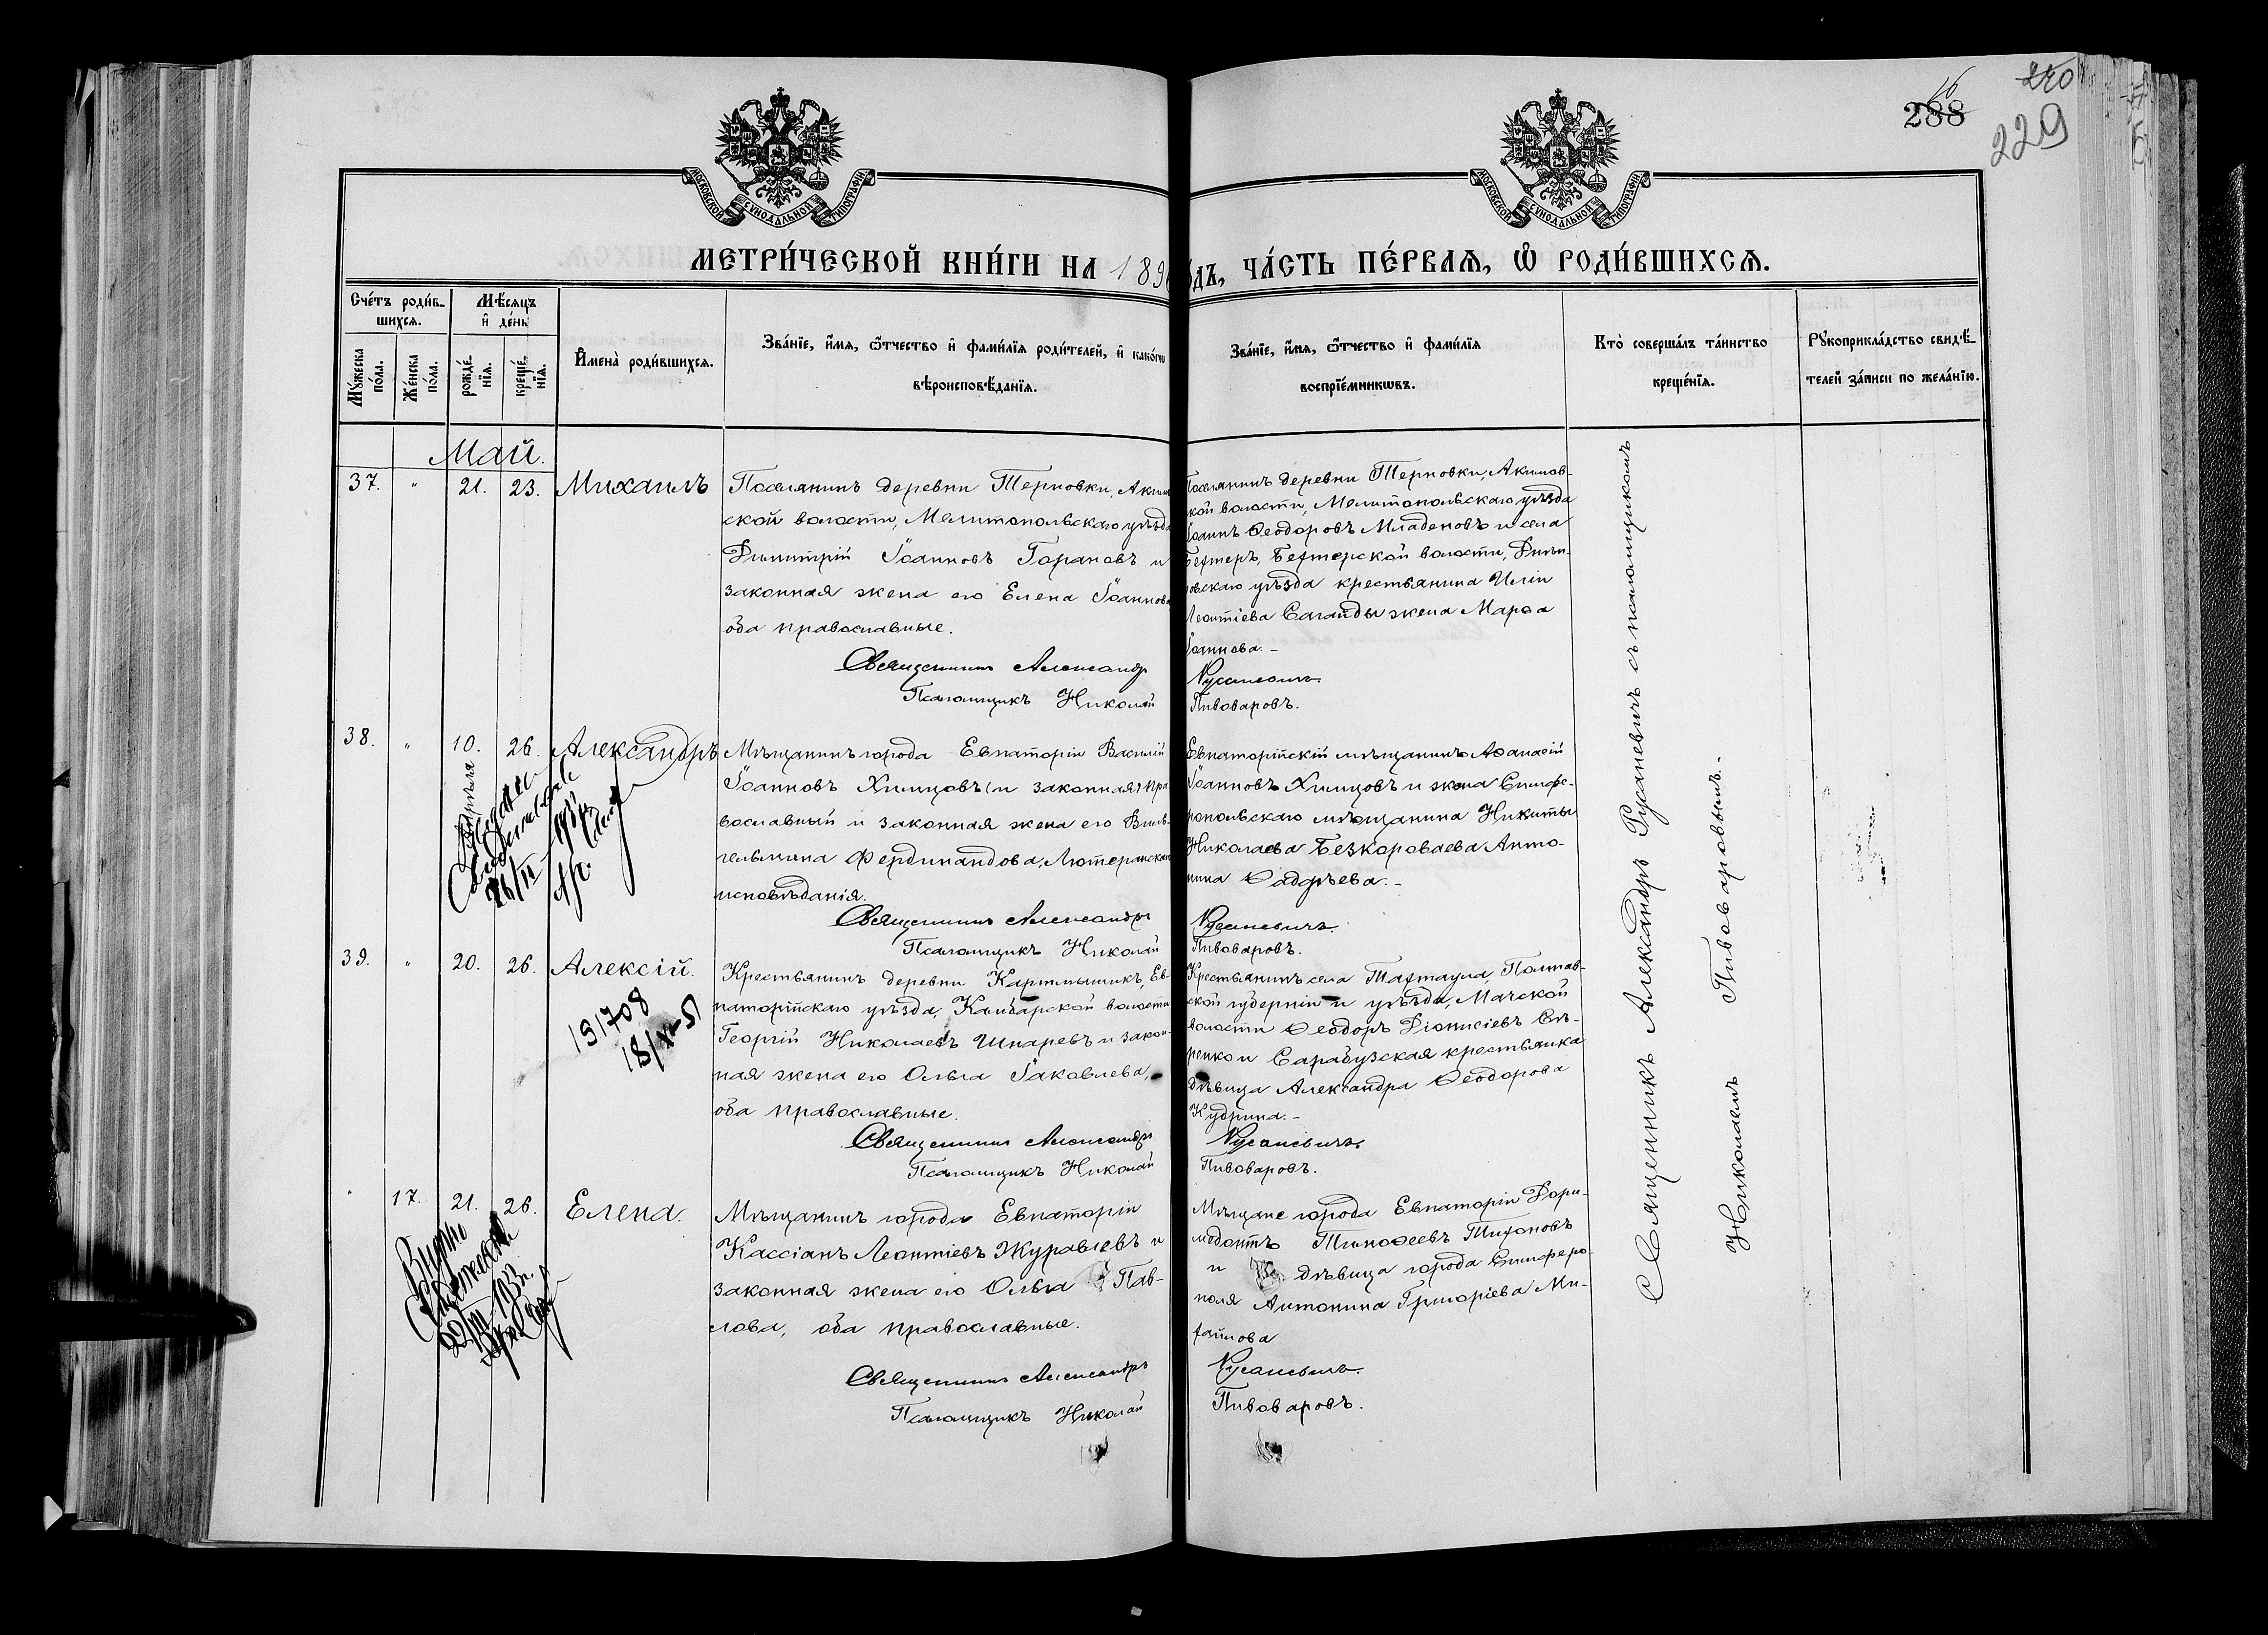 16
288
240
229
МОСКОВСКОЙ СѴНОДАЛЬНОЙ ТИПОГРАФІИ
МОСКОВСКОЙ СѴНОДАЛЬНОЙ ТИПОГРАФІИ
МЕТРИ́ЧЕСКОЙ КНИ́ГИ НА 189
ОДЪ, ЧА́СТЬ ПЕ́РВАѦ, Ѽ РОДИ́ВШИХСѦ.
Сче́тъ роди́в-
шихсѧ.
Мѣ́сяцъ
и҆ де́нь
Мꙋ́жеска по́ла.
Же́нска по́ла.
рожде́-нїѧ.
креще́-нїѧ.
И҆мена̀ роди́вшихсѧ.
Зва́нїе, и҆́мѧ, ѻ҆́тчество и҆ фамилїѧ роди́телей, и҆ како́гѡ
вѣроисповѣ́данїѧ.
Зва́нїе, и҆́мѧ, ѻ҆́тчество и҆ фами́лїѧ
воспрїе́мникѡвъ.
Кто̀ соверша́лъ та́инство
креще́нїѧ.
Рꙋкоприкла́дство свидѣ́-
телей за́писи по жела́нїю.
Май.
37. " 21. 23. Михаилъ
Поселянинъ деревни Терновки, Аким
ской волости, Мелитопольскаго уѣзда
Димитрій Іоанновъ Горановъ и
законная жена его Елена Іоаннова
оба православные.
Священникъ Александръ
Псаломщикъ Николай
Поселянинъ деревни Терновки, Акимов-
ской волости, Мелитопольскаго уѣзда
Іоаннъ Ѳеодоровъ Младеновъ и села
Бехтеръ, Бехтерской волости, Днѣп-
ровскаго уѣзда крестьянина Иліи
Леонтіева Саганды жена Марѳа
Іоаннова. –
Русаневичъ.
Пивоваровъ.
38. " 10. 26. Александръ
Апрѣля
26/II 1934
Мѣщанинъ города Евпаторіи Василій
Іоанновъ Химцовъ (и законная) пра
вославный и законная жена его Виль-
гельмина Фердинандова, Лютеранскаго
исповѣданія.
Священникъ Александръ
Псаломщикъ Николай
Евпаторійскій мѣщанинъ Аѳанасій
Іоанновъ Химцовъ и жена Симфе-
ропольскаго мѣщанина Никиты
Николаева Безкороваева Анто-
нина Ѳаддѣева. –
Русаневичъ.
Пивоваровъ.
39. " 20. 26. Алексій.
191708
18/XI-51
Крестьянинъ деревни Картмышикъ, Ев-
паторійскаго уѣзда, Камбарской волости
Георгій Николаевъ Шпаревъ и закон-
ная жена его Ольга Іаковлева,
оба православные.
Священникъ Александръ
Псаломщикъ Николай
Крестьянинъ села Тахтаула, Полтав-
ской губерніи и уѣзда, Мачской
волости Ѳеодоръ Діонисіевъ Сѣ-
ренко и Сарабузская крестьянка
дѣвица Александра Ѳеодорова
Кудрина. –
Русаневичъ.
Пивоваровъ.
" 17. 21. 26. Елена.
Мѣщанинъ города Евпаторіи
Кассіанъ Леонтіевъ Журавлевъ и
законная жена его Ольга Пав-
лова, оба православные.
Священникъ Александръ
Псаломщикъ Николай
Мѣщане города Евпаторіи Дори-
медонтъ Тимоѳеевъ Тихоновъ
и дѣвица города Симферо-
поля Антонина Григоріева Ми-
хайлова
Русаневичъ.
Пивоваровъ.
Священникъ Александръ Русаневичъ съ псаломщикомъ
Николаемъ Пивоваровымъ. –